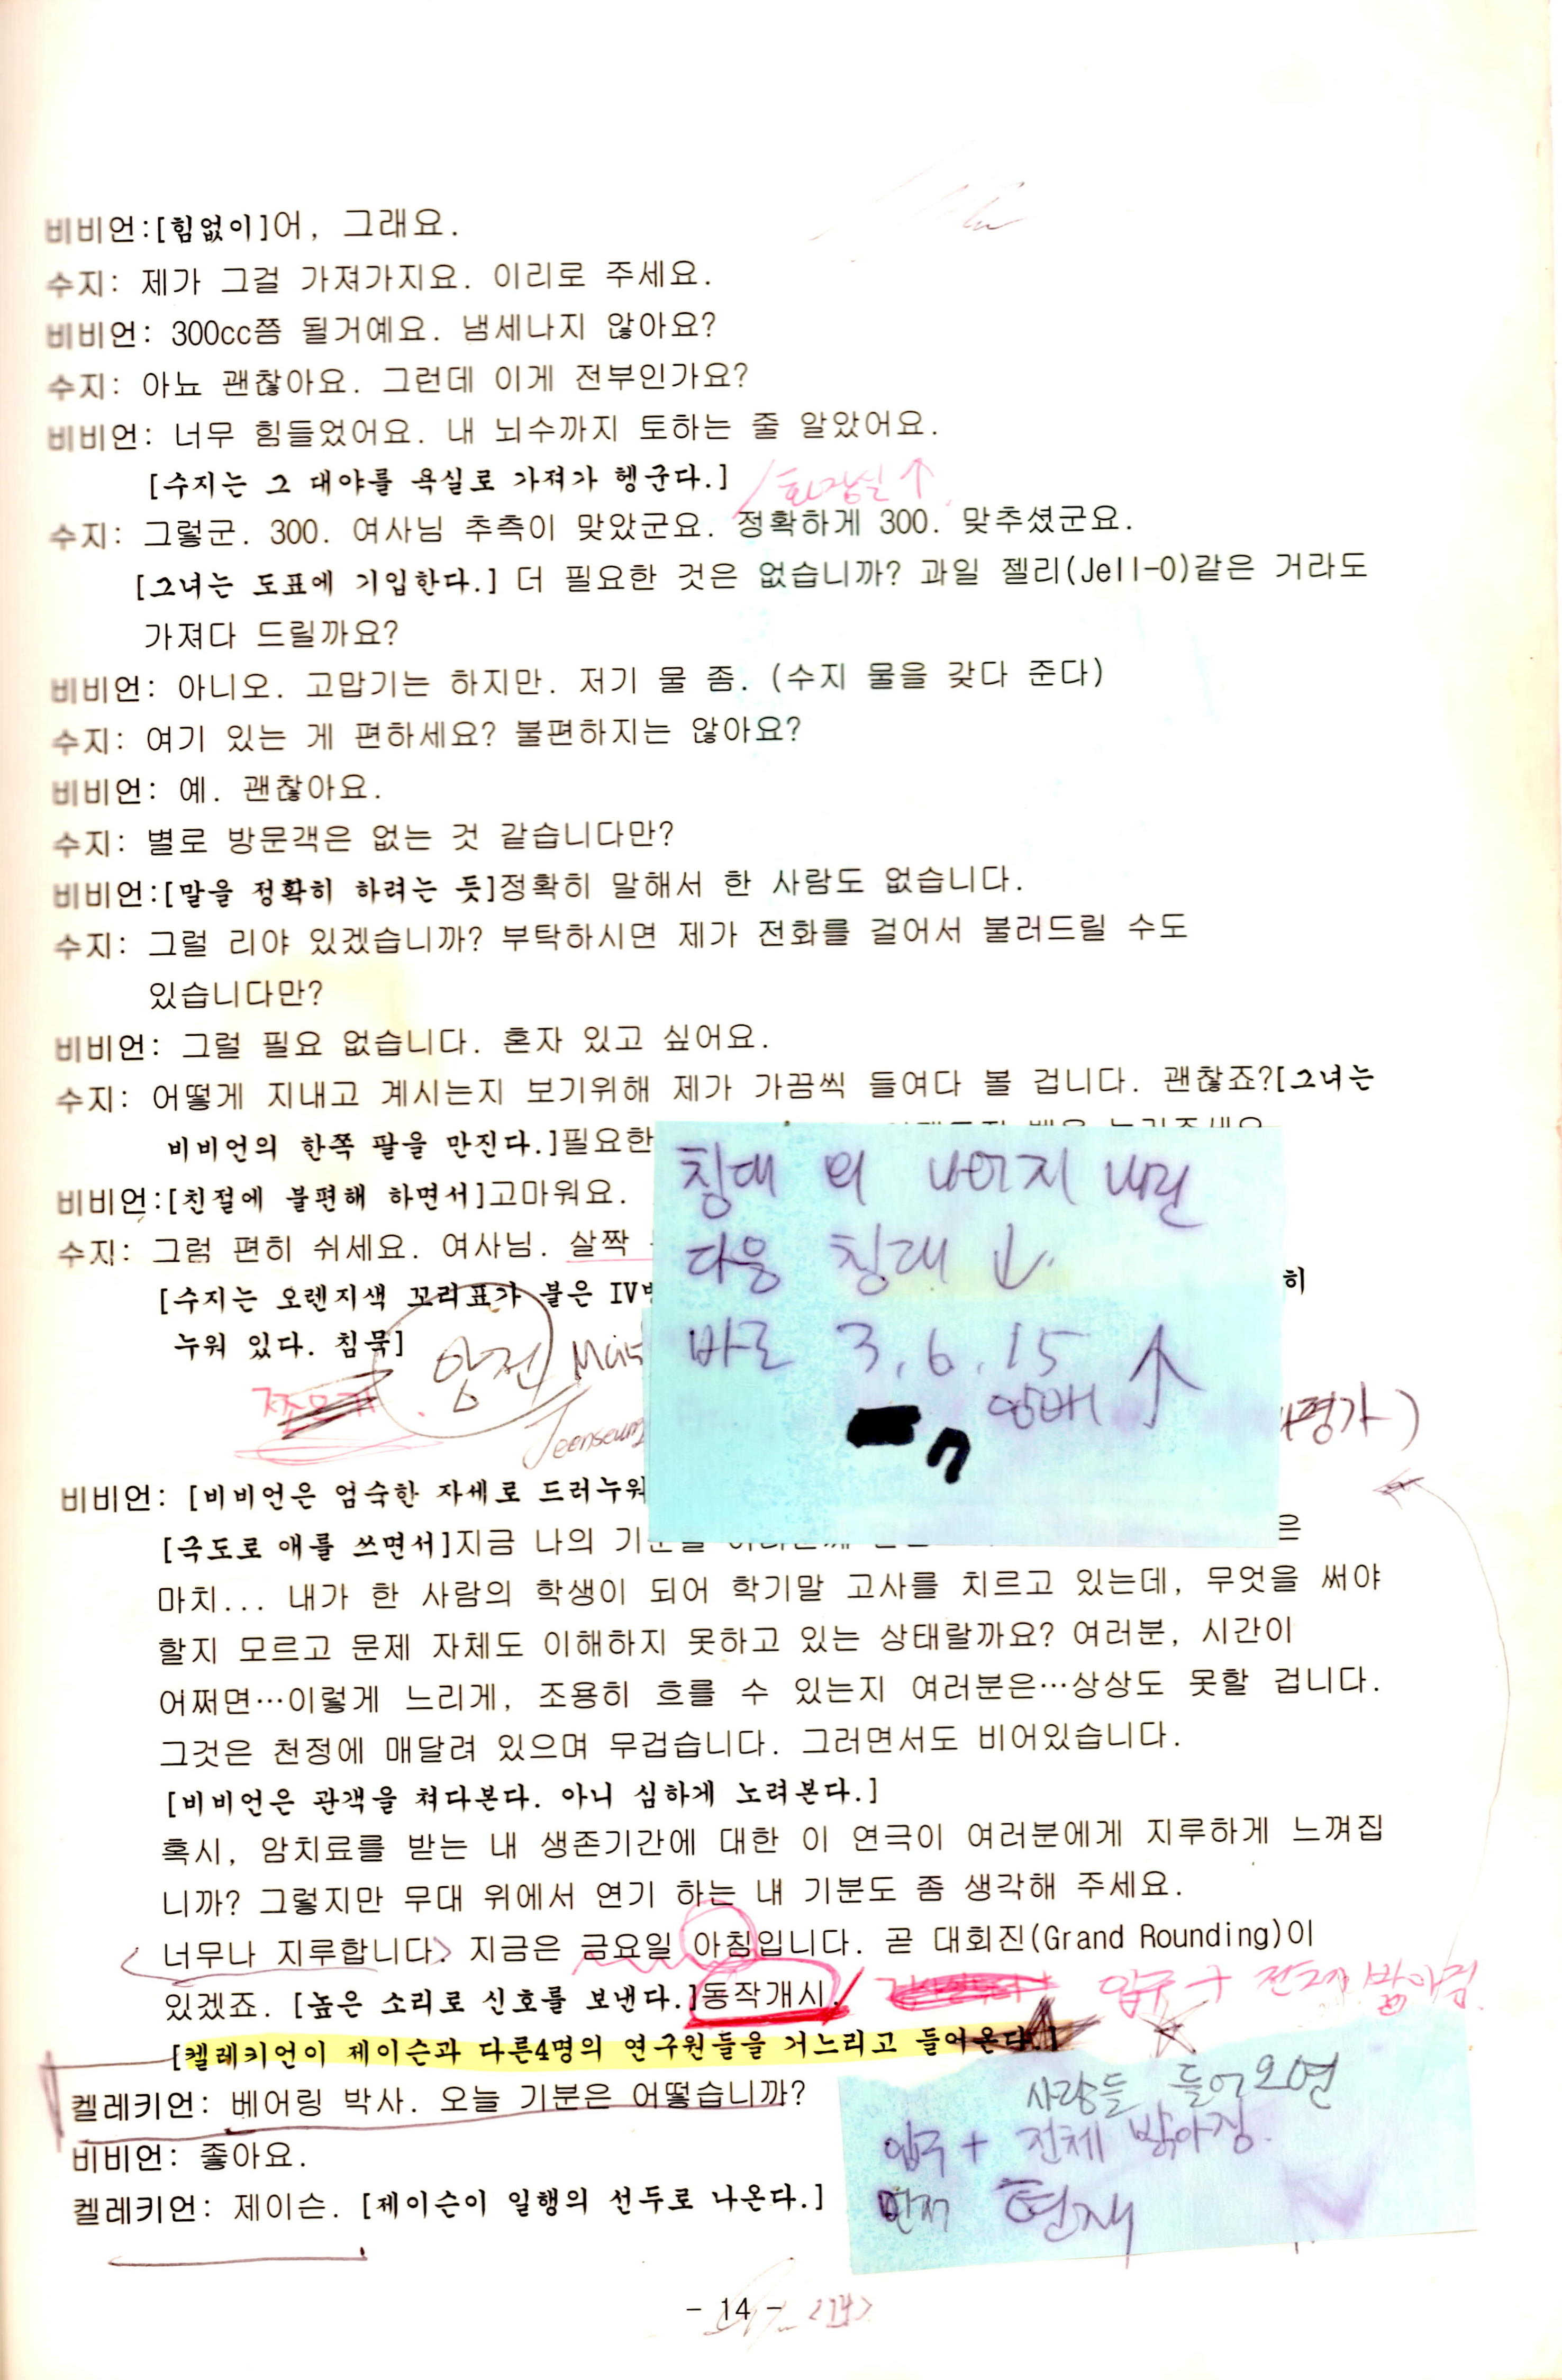 비비언:[힘없이]어, 그래요.
수지: 제가 그걸 가져가지요. 이리로 주세요.
비비언: 300cc쯤 될거예요. 냄세나지 않아요?
수지: 아뇨 괜찮아요. 그런데 이게 전부인가요?
비비언: 너무 힘들었어요. 내 뇌수까지 토하는 줄 알았어요.
[수지는 그 대야를 욕실로 가져가 헹군다.]
화장실 ↑
수지: 그렇군. 300. 여사님 추측이 맞았군요. 정확하게 300. 맞추셨군요.
[그녀는 도표에 기입한다.] 더 필요한 것은 없습니까? 과일 젤리(Jell-O)같은 거라도
가져다 드릴까요?
비비언: 아니오. 고맙기는 하지만. 저기 물 좀. (수지 물을 갖다 준다)
수지: 여기 있는 게 편하세요? 불편하지는 않아요?
비비언: 예. 괜찮아요.
수지: 별로 방문객은 없는 것 같습니다만?
비비언:[말을 정확히 하려는 듯]정확히 말해서 한 사람도 없습니다.
수지: 그럴 리야 있겠습니까? 부탁하시면 제가 전화를 걸어서 불러드릴 수도
있습니다만?
비비언: 그럴 필요 없습니다. 혼자 있고 싶어요.
수지: 어떻게 지내고 계시는지 보기위해 제가 가끔씩 들여다 볼 겁니다. 괜찮죠?[그녀는
비비언의 한쪽 팔을 만진다.]필요한
비비언:[친절에 불편해 하면서]고마워요.
수지: 그럼 편히 쉬세요. 여사님. 살짝
[수지는 오렌지색 꼬리표가 붙은 IV 히
누워 있다. 침묵]
침대 외 나머지 내린
다음 침대 ↓.
바로 3, 6, 15 ↑
암전
평가)
비비언: [비비언은 엄숙한 자세로 드러누워
[극도로 애를 쓰면서]지금 나의 은
마치... 내가 한 사람의 학생이 되어 학기말 고사를 치르고 있는데, 무엇을 써야
할지 모르고 문제 자체도 이해하지 못하고 있는 상태랄까요? 여러분, 시간이
어쩌면…이렇게 느리게, 조용히 흐를 수 있는지 여러분은…상상도 못할 겁니다.
그것은 천정에 매달려 있으며 무겁습니다. 그러면서도 비어있습니다.
[비비언은 관객을 쳐다본다. 아니 심하게 노려본다.]
혹시, 암치료를 받는 내 생존기간에 대한 이 연극이 여러분에게 지루하게 느껴집
니까? 그렇지만 무대 위에서 연기 하는 내 기분도 좀 생각해 주세요.
<너무나 지루합니다> 지금은 금요일 아침입니다. 곧 대회진(Grand Rounding)이
있겠죠. [높은 소리로 신호를 보낸다.]동작개시.
입구 + 전체 밝아짐.
[켈레키언이 제이슨과 다른4명의 연구원들을 거느리고 들어온다.]
켈레키언: 베어링 박사. 오늘 기분은 어떻습니까?
비비언: 좋아요.
켈레키언: 제이슨. [제이슨이 일행의 선두로 나온다.]
사람들 들어오면
입구 + 전체 밝아짐.
먼저 현재
- 14 -